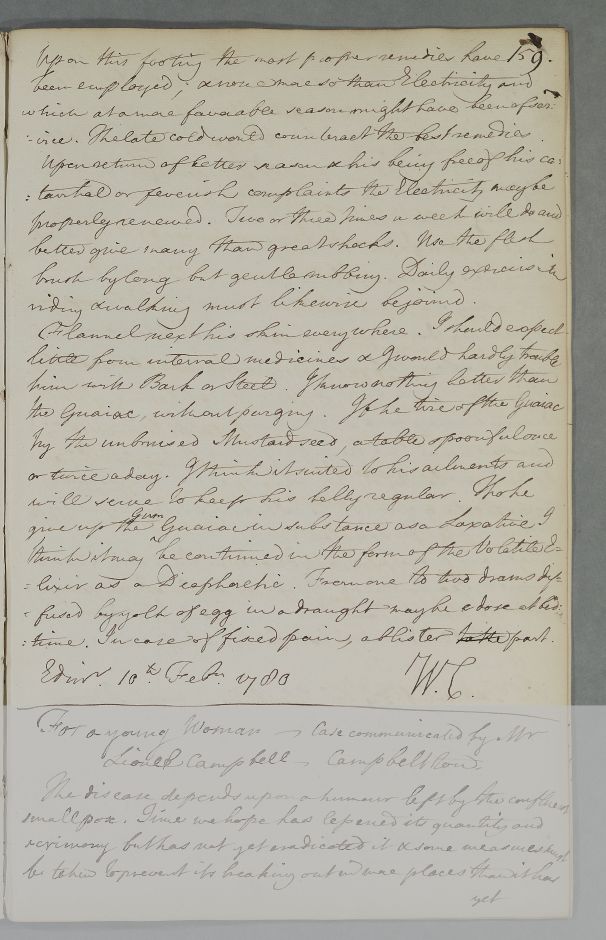 159.
Upon this footing the most proper remedies have
been employed, & none more so than Electricity and
which at a more favourable season might have been of ser:
:vice. The late cold would counteract the best remedies
Upon return of better season & his being free of his ca:
:tarrhal or feverish complaints the Electricity may be
properly renewed. Two or three times a week will do and
better give many than great shocks. Use the flesh
brush by long but gentle rubbing. Daily exercise in
riding & walking must likewise be joined.
Flannel next his skin everywhere. I should expect
little from internal medicines & I would hardly trouble
him with Bark or Steel. I know nothing better than
the Guaiac, without purging. If he tire of the Guaiac
try the unbruised Mustard seed, a table spoonful once
or twice a day. I think it suited to his ailments and
will serve to keep his belly regular. Tho he
give up the Gum Guaiac in substance as a Laxative I
think it may be continued in the form of the Volatile E-
:lixir as a Diaphoretic. From one to two drams dif:
:fused by yolk of egg in a draught may be a dose at bed:
:time. In case of fixed pain, a blister to the part.
Edinr. 10th Febr. 1780 W.C.
For a young Woman – Case communicated by Mr
Lionel Campbell – Campbelltown
The disease depends upon a humour left by the confluent
small pox. Time we hope has lessened its quantity and
acrimony but has not yet eradicated it & some measures must
be taken to prevent its breaking out in more places than it has
yet